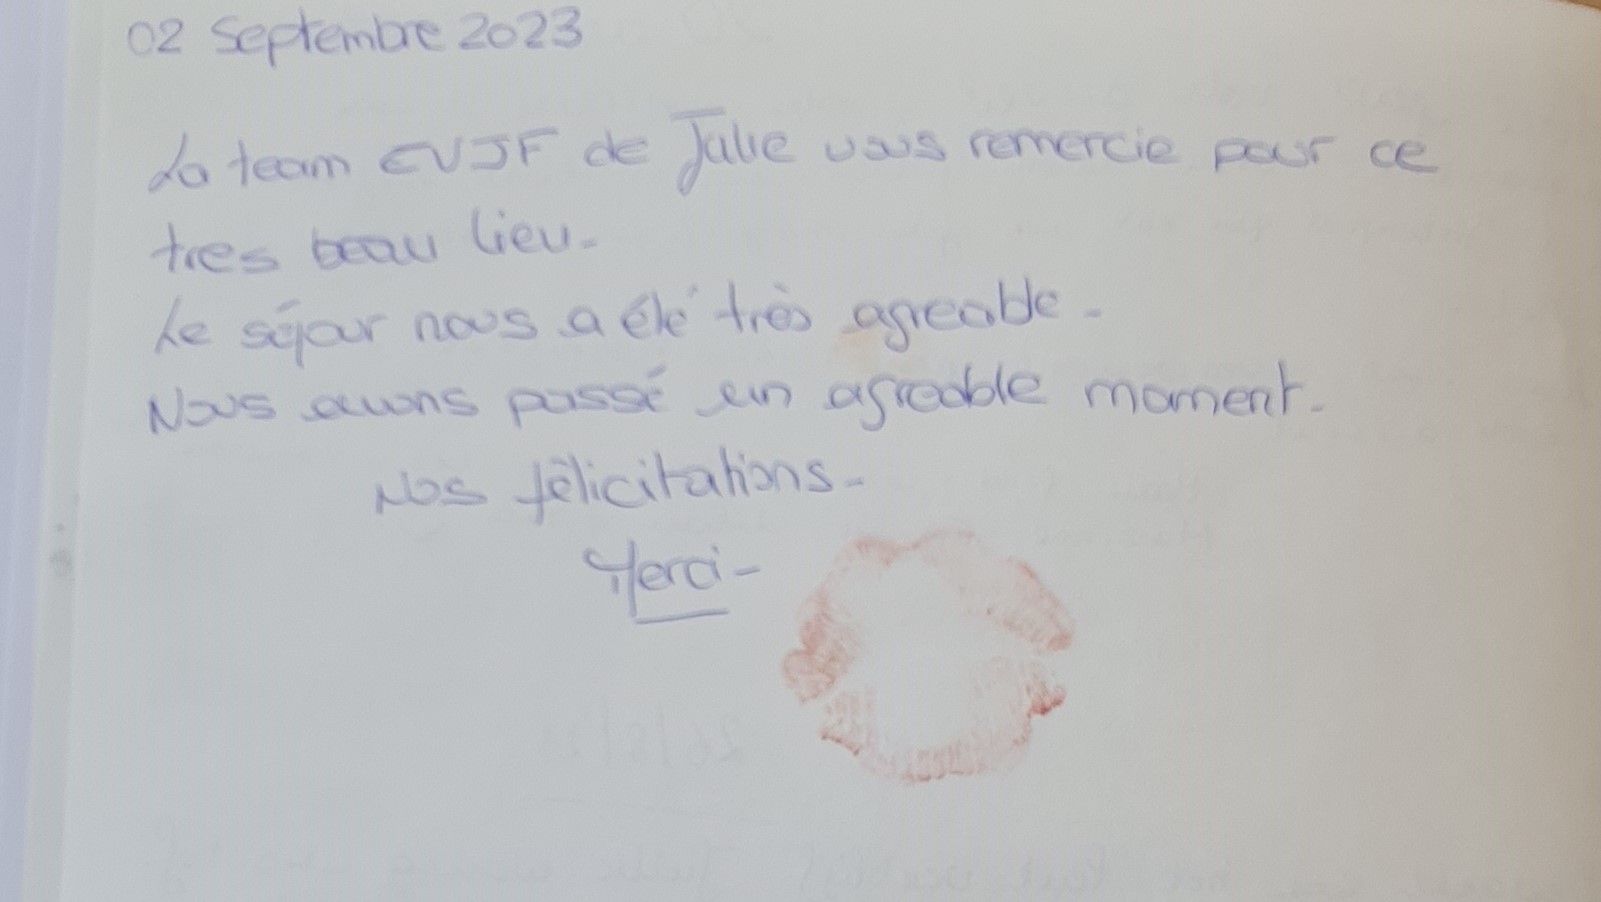 02 Septembre 2023
La team EVJF de Julie vous remercie pour ce
tres beau lieu.
Le séjour nous a été très agreable.
Nous avons passé un agreable moment.
Nos félicitations.
Merci-